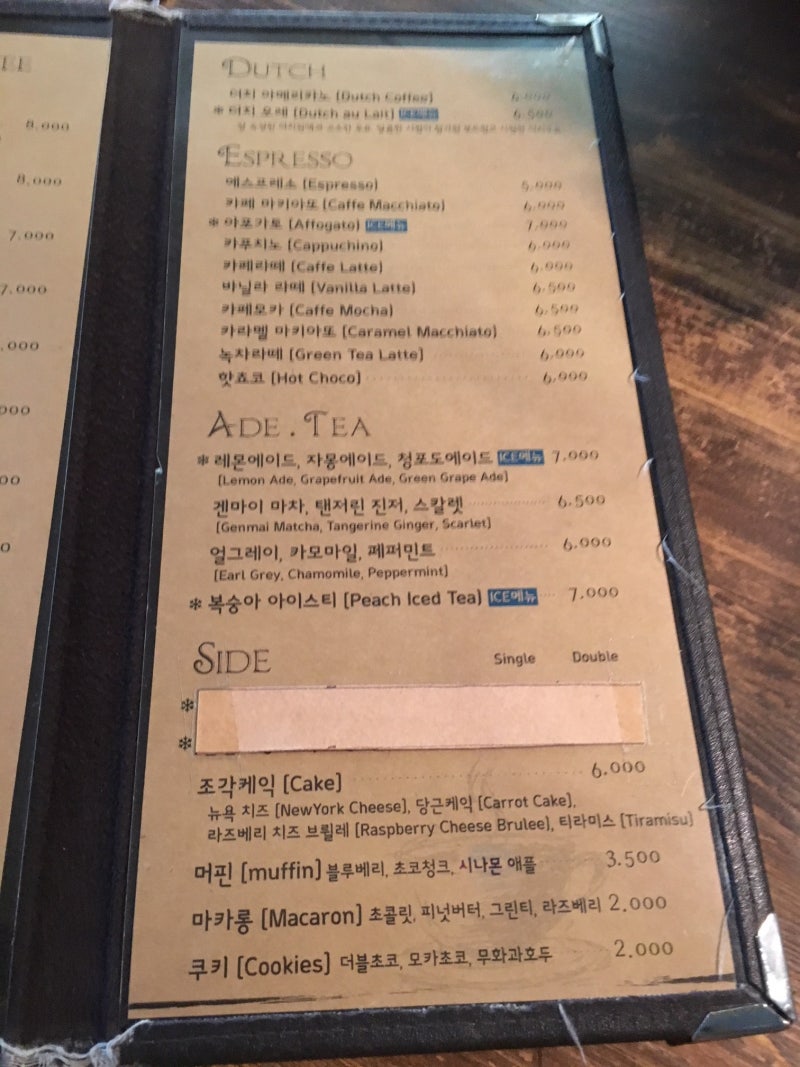 EE
8,000
8,000
7.000
7.000
,000
000
00
0
DUTCH
더치 아메리카노 [Dutch Coffee] 6.000
* 더치 오레 [Dutch au Lait] ICE메뉴 6.500
ESPRESSO
에스프레소 [Espresso] 5.000
카페 마키아또 [Caffe Macchiato] 6.000
* 아포가토 [Affogato] ICE메뉴 7.000
카푸치노 [Cappuchino] 6.000
카페라떼 [Caffe Latte] 6.000
바닐라 라떼 [Vanilla Latte] 6.500
카페모카 [Caffe Mocha] 6.500
카라멜 마키아또 [Caramel Macchiato] 6.500
녹차라떼 [Green Tea Latte] 6.000
핫쵸코 [Hot Choco] 6.000
ADE . TEA
* 레몬에이드, 자몽에이드, 청포도에이드 ICE메뉴 7.000
[Lemon Ade, Grapefruit Ade, Green Grape Ade]
겐마이 마차, 탠저린 진저, 스칼렛 6.500
[Genmai Matcha, Tangerine Ginger, Scarlet]
얼그레이, 카모마일, 페퍼민트 6.000
[Earl Grey, Chamomile, Peppermint]
* 복숭아 아이스티 [Peach Iced Tea] ICE메뉴 7.000
SIDE Single Double
*
*
조각케익 [Cake] 6.000
뉴욕 치즈 [NewYork Cheese], 당근케익 [Carrot Cake],
라즈베리 치즈 브륄레 [Raspberry Cheese Brulee], 티라미스 [Tiramisu]
머핀 [muffin] 블루베리, 초코청크, 시나몬 애플 3.500
마카롱 [Macaron] 초콜릿, 피넛버터, 그린티, 라즈베리 2.000
쿠키 [Cookies] 더블초코, 모카초코, 무화과호두 2.000